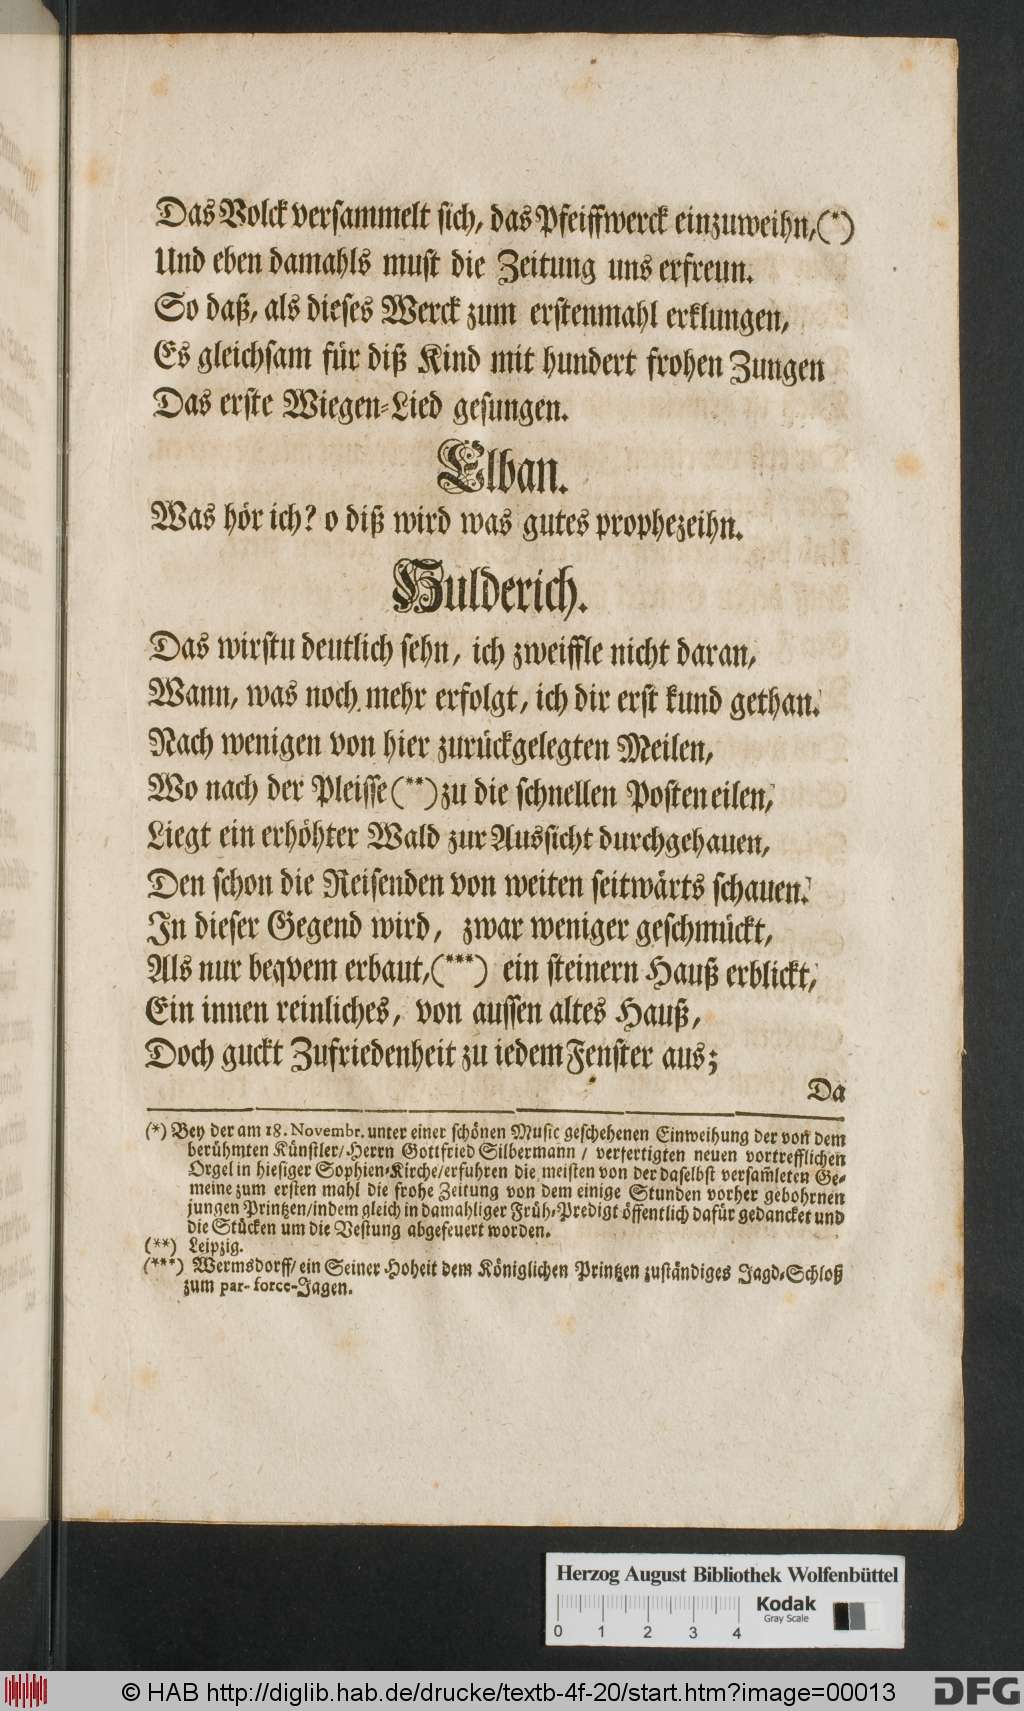 Das Volck versammelt sich, das Pfeiffwerck einzuweihn,(*)
Und eben damahls must die Zeitung uns erfreun.
So daß, als dieses Werck zum erstenmahl erklungen,
Es gleichsam für diß Kind mit hundert frohen Zungen
Das erste Wiegen-Lied gesungen.
Elban.
Was hör ich? o diß wird was gutes prophezeihn.
Hulderich.
Das wirstu deutlich sehn, ich zweiffle nicht daran,
Wann, was noch mehr erfolgt, ich dir erst kund gethan.
Nach wenigen von hier zurückgelegten Meilen,
Wo nach der Pleisse (**) zu die schnellen Posten eilen,
Liegt ein erhöhter Wald zur Aussicht durchgehauen,
Den schon die Reisenden von weiten seitwärts schauen.
In dieser Gegend wird, zwar weniger geschmückt,
Als nur beqvem erbaut,(***) ein steinern Hauß erblickt,
Ein innen reinliches, von aussen altes Hauß,
Doch guckt Zufriedenheit zu iedem Fenster aus;
Da
(*) Bey der am 18. Novembr. unter einer schönen Music geschehenen Einweihung der von dem
berühmten Künstler/Herrn Gottfried Silbermann / verfertigten neuen vortrefflichen
Orgel in hiesiger Sophien-Kirche/erfuhren die meisten von der daselbst versam̃leten Ge-
meine zum ersten mahl die frohe Zeitung von dem einige Stunden vorher gebohrnen
jungen Printzen/indem gleich in damahliger Früh-Predigt öffentlich dafür gedancket und
die Stücken um die Vestung abgefeuert worden.
(**) Leipzig.
(***) Wermsdorff/ein Seiner Hoheit dem Königlichen Printzen zuständiges Jagd-Schloß
zum par-force-Jagen.
Herzog August Bibliothek Wolfenbüttel
Kodak
Gray Scale
0 1 2 3 4
© HAB http://diglib.hab.de/drucke/textb-4f-20/start.htm?image=00013
DFG